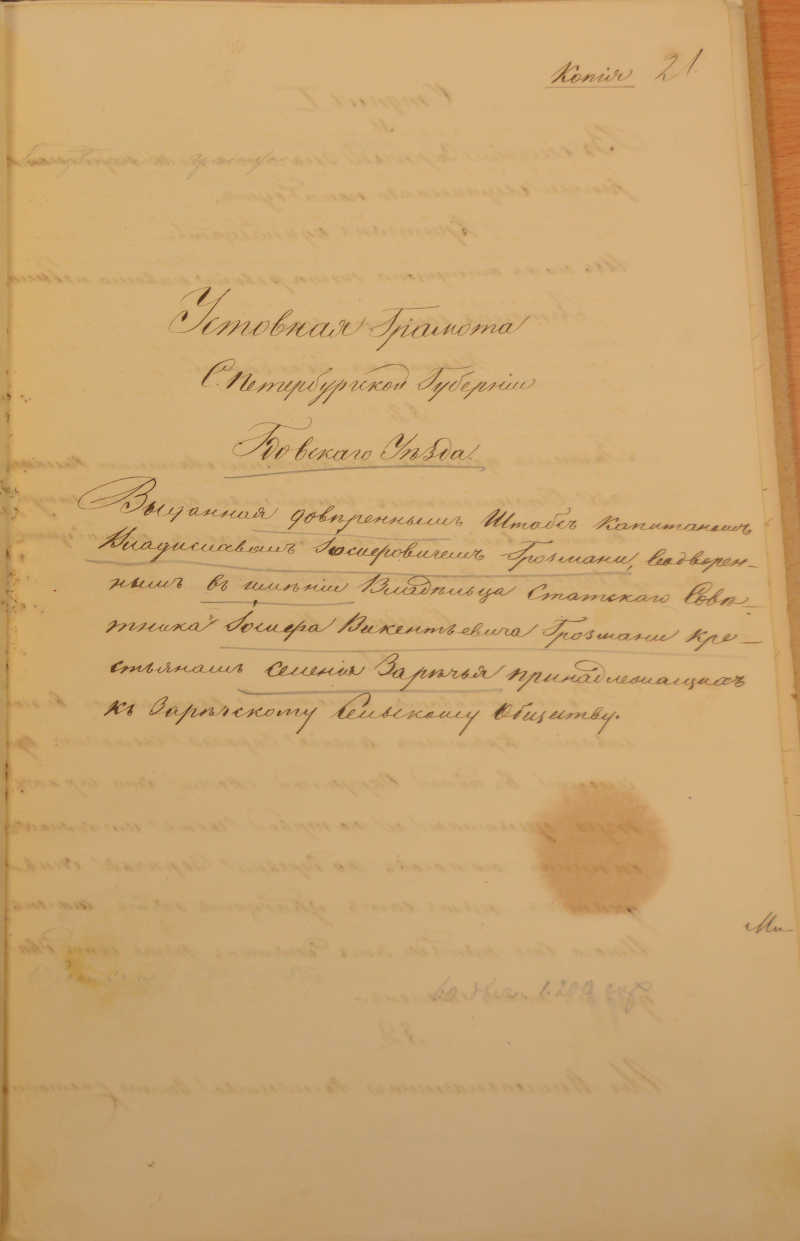 Копія 21
Уставная Грамота
С. Петербургской Губерніи
Гдовскаго Уѣзда.
Выданная довѣреннымъ Штабсъ Капитаномъ
Владиславомъ Госиеровичемъ Грозмани, водворен-
нымъ въ имѣніи Владѣльца Статскаго Совѣ-
тника Госиера Викентьевича Грозмани кре-
стьянамъ селенія Зарѣчья принадлежащихъ
къ Зарѣчскому Сельскому Обществу.
Ми-